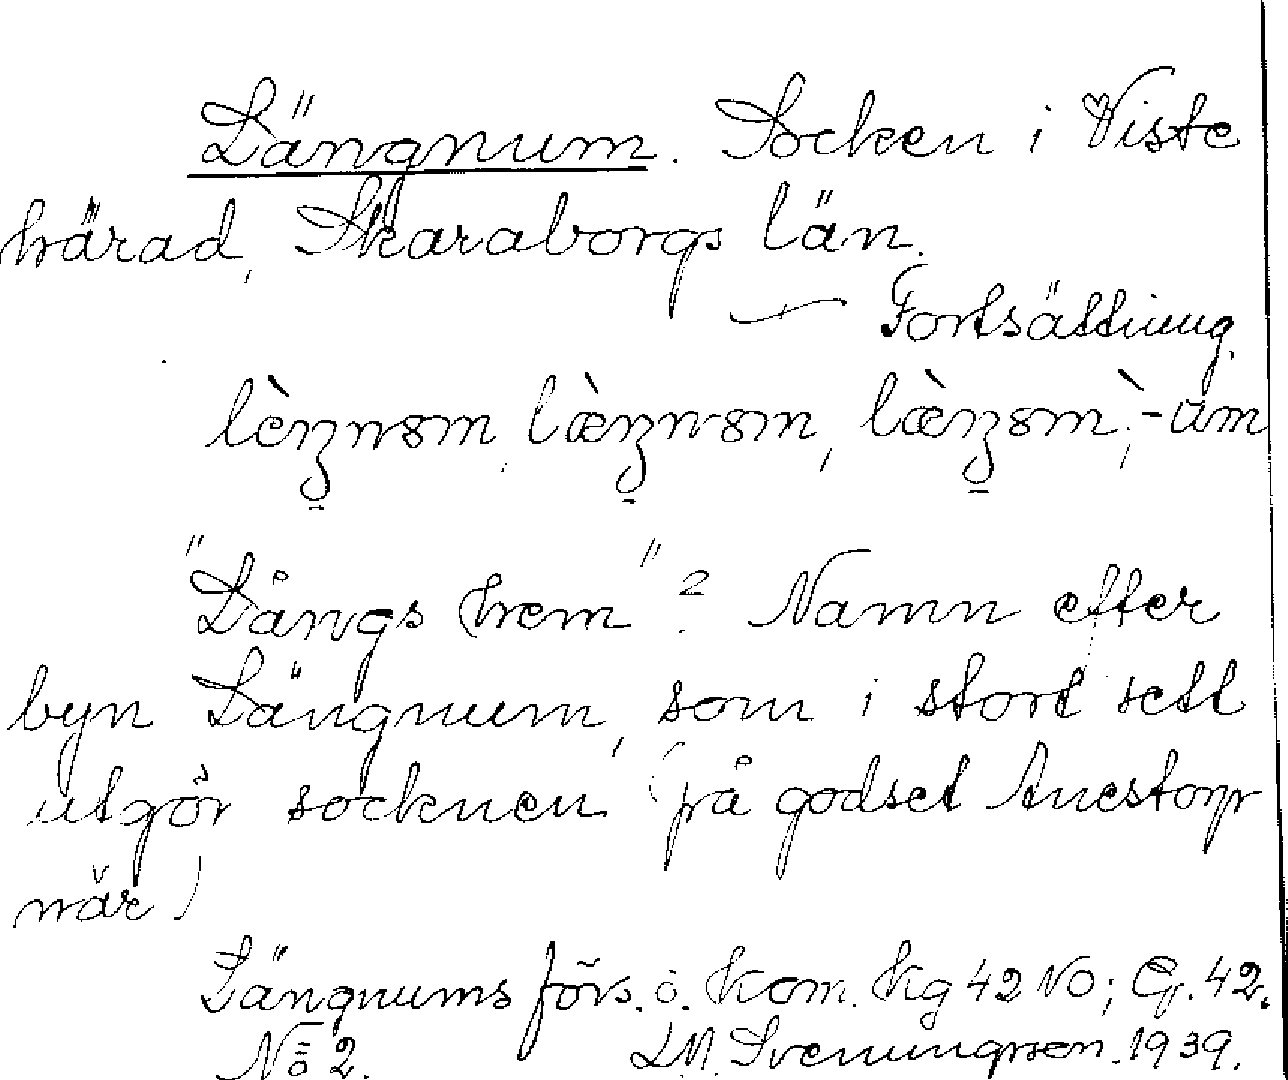 Längnum. Socken i Viste
härad, Skaraborgs län.
— Fortsättning.
"Långs hem"? Namn efter
byn Längnum, som i stort sett
utgör socknen (på godset Anestorp
när)
Längnums förs. o. kom. Kg 42 NO; G. 42.
Nö 2. Sveningsson. 1939.